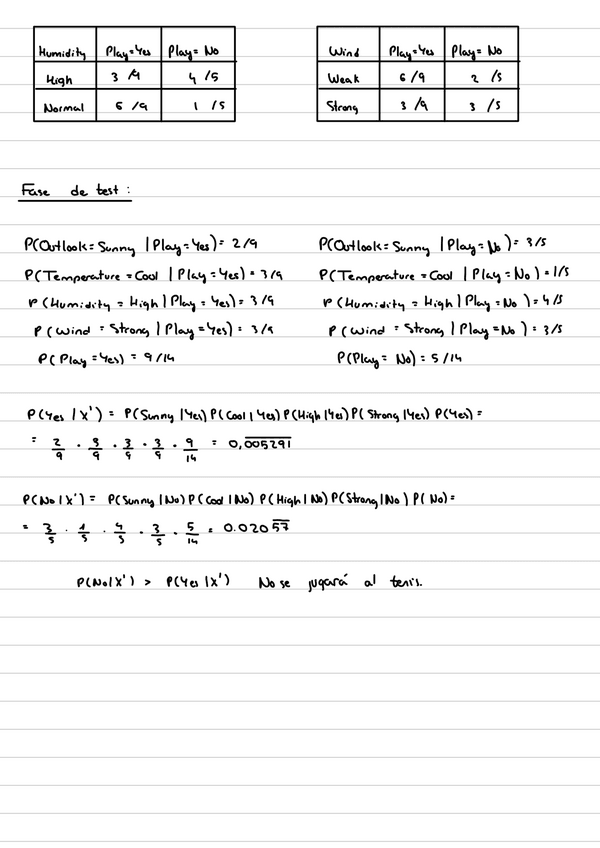 Humidity Play=Yes Play=No
High 3/9 4/5
Normal 6/9 1/5
Wind Play=Yes Play=No
Weak 6/9 2/5
Strong 3/9 3/5
Fase de test:
P(Outlook=Sunny | Play=Yes)= 2/9 P(Outlook=Sunny | Play=No)= 3/5
P(Temperature=Cool | Play=Yes)= 3/9 P(Temperature=Cool | Play=No)=1/5
P(Humidity=High | Play=Yes)= 3/9 P(Humidity=High | Play=No)=4/5
P(Wind=Strong | Play=Yes)= 3/9 P(Wind=Strong | Play=No)= 3/5
P(Play=Yes)= 9/14 P(Play=No)= 5/14
P(Yes | X')= P(Sunny|Yes) P(Cool|Yes) P(High|Yes) P(Strong|Yes) P(Yes)=
= 2/9 · 3/9 · 3/9 · 3/9 · 9/14 = 0,005291
P(No|X')= P(Sunny|No) P(Cool|No) P(High|No) P(Strong|No) P(No)=
= 3/5 · 1/5 · 4/5 · 3/5 · 5/14 = 0.02057
P(No|X') > P(Yes|X') No se jugará al tenis.